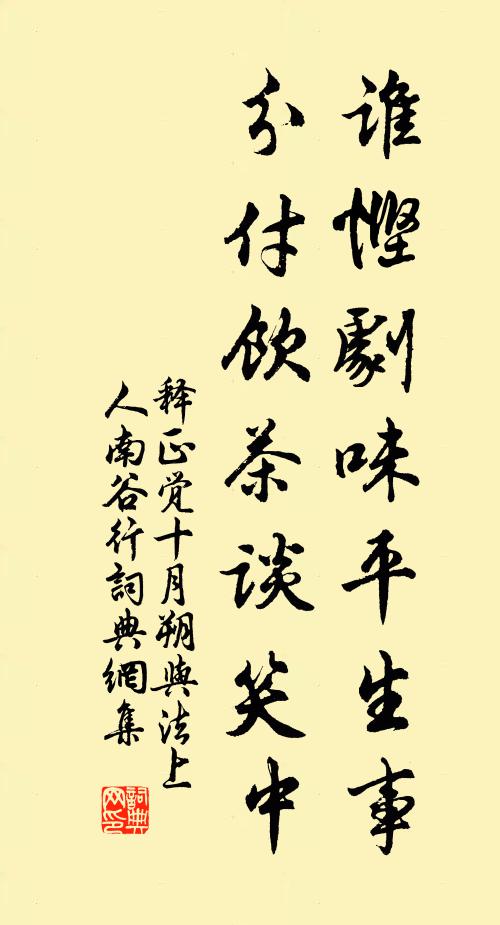 誰慳劇味平生事
分付飲茶談笑中
释正觉十月朔與法上
人南谷行詞典網集
詞典
网印